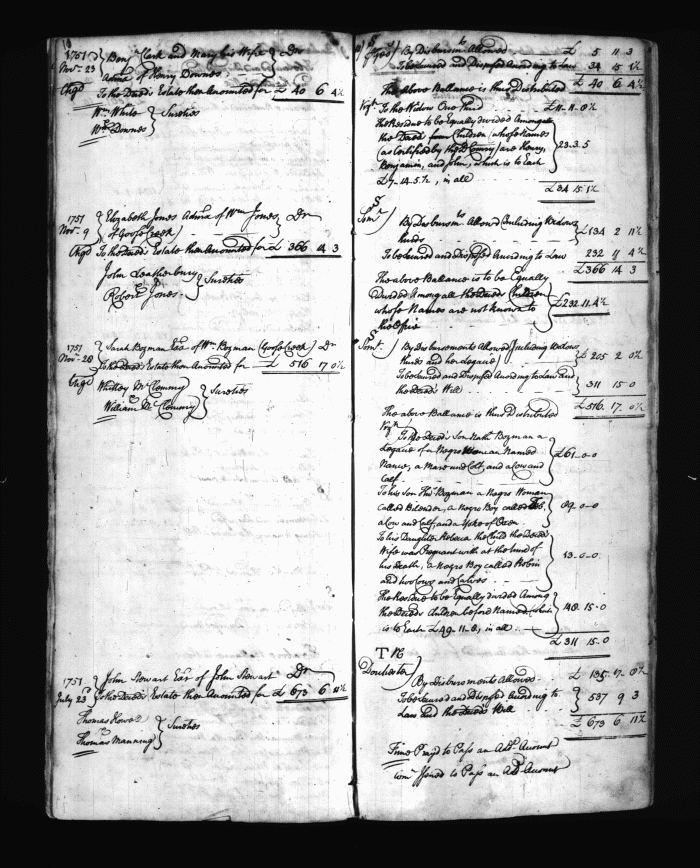 10
1751
Novr. 23
Benj. Clark and Mary his Wife
Admx of Henry Downes
Dr
Chgd To the Deced's Estate then Amounted for £ 40 6 4½
Wm. White
Wm. Downes
Sureties
1751
Novr. 9
Elizabeth Jones Admx of Wm Jones
of Goose Creek
Dr
Chgd To the Deced's Estate then Amounted for £ 366 14 3
John Leatherbury
Robert Jones
Sureties
1751
Novr. 20
Sarah Bozman Exx of Wm Bozman (Goose Creek) Dr
To the Deced's Estate then Amounted for £ 516 17 0½
Chgd
Whittley McClemmy
William McClemmy
Sureties
1751
July 23d
John Stewart Exr of John Stewart Dr
To the Deced's Estate then Amounted for £ 673 6 11½
Thomas
Thomas Manning
Sureties
By Disbursmts Allowed £ 5 11 3
To be Secured and Disposed According to Law 34 15 1½
£ 40 6 4½
The Above Ballance is thus Distributed
Vizt. To the Widow One third £11-11-8½
The Residue to be Equally divided Amongst
the Deced's four Children (whose Names
(as Certified by the D Comry) are Henry,
Benjamin, and John, which is to Each
£7-14-5½, in all
23-3-5
£34 15 1½
Somt
By Disbursmts Allowed (Including Widows
thirds
£134 2 11½
To be Secured and Disposed According to Law 232 11 4½
£366 14 3
The above Ballance is to be Equally
Divided Among all the Deced's Children
whose Names are not known to
this Office
£232 11 4½
Somt.
By Disbursements Allowed (Including Widows
thirds and her Legacie)
£ 205 2 0½
To be Secured and Disposed According to Law and
the Deced's Will
311 15 0
£516 17 0½
The above Ballance is thus Distributed
Vizt
To the Deced's Son Nathl Bozman a
Legacie of a Negro Woman Named
Nancy, a Mare and Colt, and a Cow and
Calf
£61-0-0
To his Son Thos. Bozman a Negro Woman
called Bilender, a Negro Boy called
a Cow and Calf, and a Yoke of Oxen
89-0-0
To his Daughter Rebecca the Child the Deced's
Wife was Pregnant with at the time of
his Death, a Negro Boy called Robin
and two Cows and Calves
13-0-0
The Residue to be Equally divided Among
the Deced's Children before Named, which
is to Each £49-11-8, in all
148-15-0
£311 15-0
Dorchester
By Disbursments Allowed £ 135-17-8½
To be Secured and Disposed According to
Law and the Deced's Will
537 9 3
£ 673 6 11½
Time Pray'd to Pass an Addl. Account
Issued to Pass an Addl Account